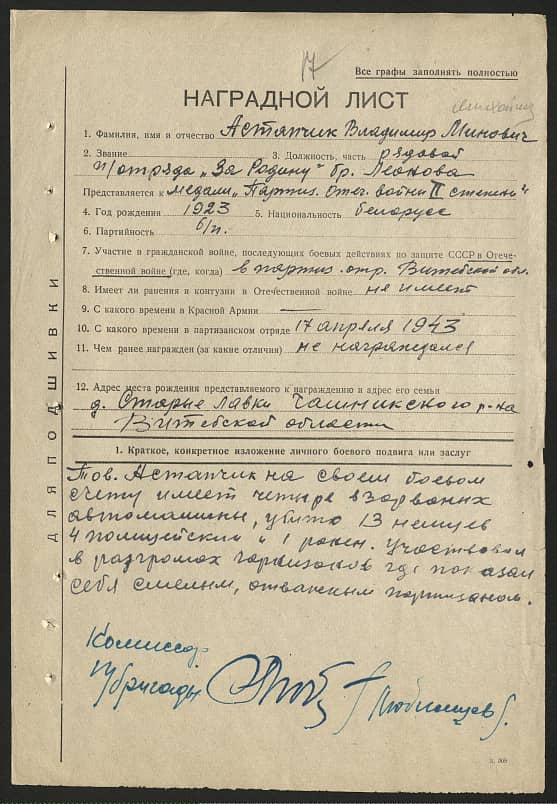 17
Все графы заполнять полностью
НАГРАДНОЙ ЛИСТ
1. Фамилия, имя и отчество Астапчик Владимир Минович
2. Звание 3. Должность, часть рядовой
п/отряда „За Родину" бр. Леонова
Представляется к медали „Партиз. Отеч. войны II степени"
4. Год рождения 1923 5. Национальность белорусс
6. Партийность б/п.
7. Участие в гражданской войне, последующих боевых действиях по защите СССР в Отече-
ственной войне (где, когда) в партиз. отр. Витебской обл.
8. Имеет ли ранения и контузии в Отечественной войне не имеет
9. С какого времени в Красной Армии
10. С какого времени в партизанском отряде 17 апреля 1943
11. Чем ранее награжден (за какие отличия) не награждался
12. Адрес места рождения представляемого к награждению и адрес его семьи
д. Старые Лавки Чашникского р-на
Витебской области
1. Краткое, конкретное изложение личного боевого подвига или заслуг
Тов. Астапчик на своем боевом
счету имеет четыре взорваных
автомашины, убито 13 немцев
4 полицейских и 1 ранен. Участвовал
в разгромах гарнизонов где показал
себя смелым, отважным партизаном.
Комиссар
п/бригады
ДЛЯ ПОДШИВКИ